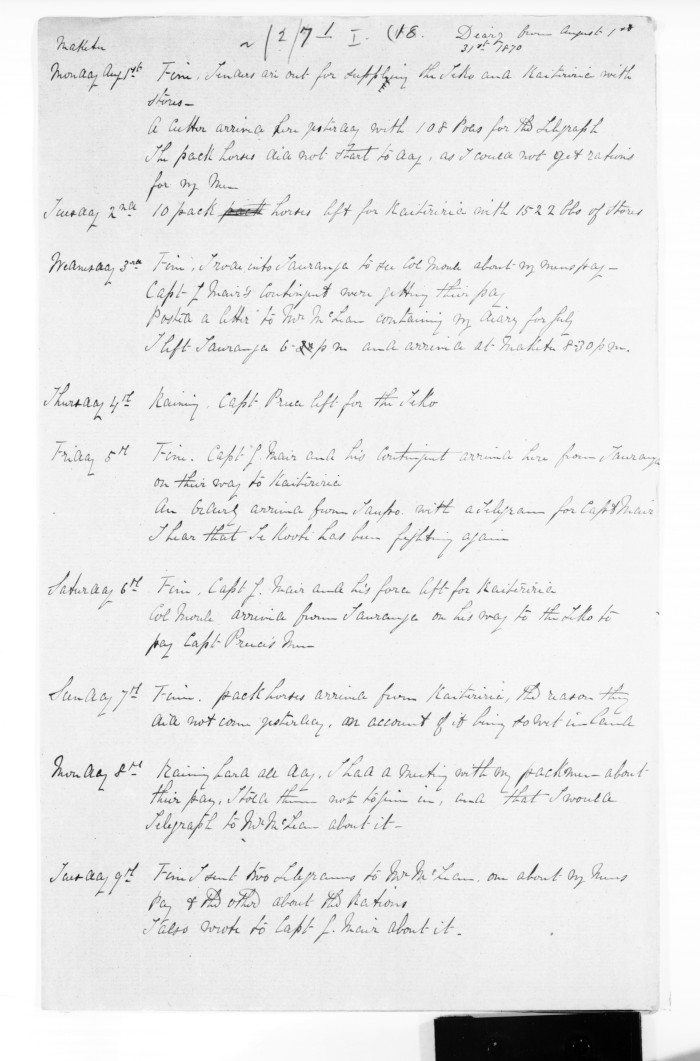 Maketu
(2) 71 I. (18.
Diary from August 1st
31st 1870
Monday Aug 1st Fine. Tenders are out for supplying the Teko and Kaiteriria with
stores -
A Cutter arrived here yesterday with 108 Poles for the Telegraph
The pack horses did not start to day, as I could not get rations
for my Men
Tuesday 2nd 10 pack pack horses left for Kaiteriria with 1522 lbs of Stores
Wednesday 3rd Fine, I rode into Tauranga to see Col Moule about my mens pay -
Capt G Mair's Contingent were getting their pay
Posted a letter to Mr McLean containing my diary for July
I left Tauranga 6 pm and arrived at Maketu 8-30 pm.
Thursday 4th Raining. Capt Preece left for the Teko
Friday 5th Fine. Capt G. Mair and his Contingent arrived here from Tauranga
on their way to Kaiteriria
An Orderly arrived from Taupo with a Telegram for Capt Mair
I hear that Te Kooti has been fighting again
Saturday 6th Fine. Capt G. Mair and his force left for Kaiteriria
Col Moule arrived from Tauranga on his way to the Teko to
pay Capt Preeces Men
Sunday 7th Fine. pack horses arrived from Kaiteriria, the reason they
did not come yesterday, on account of it being so wet in land
Monday 8th Raining hard all day. I had a meeting with my packmen about
their pay, I told them not to give in, and that I would
Telegraph to Mr McLean about it -
Tuesday 9th Fine I sent two Telegrams to Mr McLean. one about my Mens
Pay & the other about the Rations
I also wrote to Capt G. Mair about it -